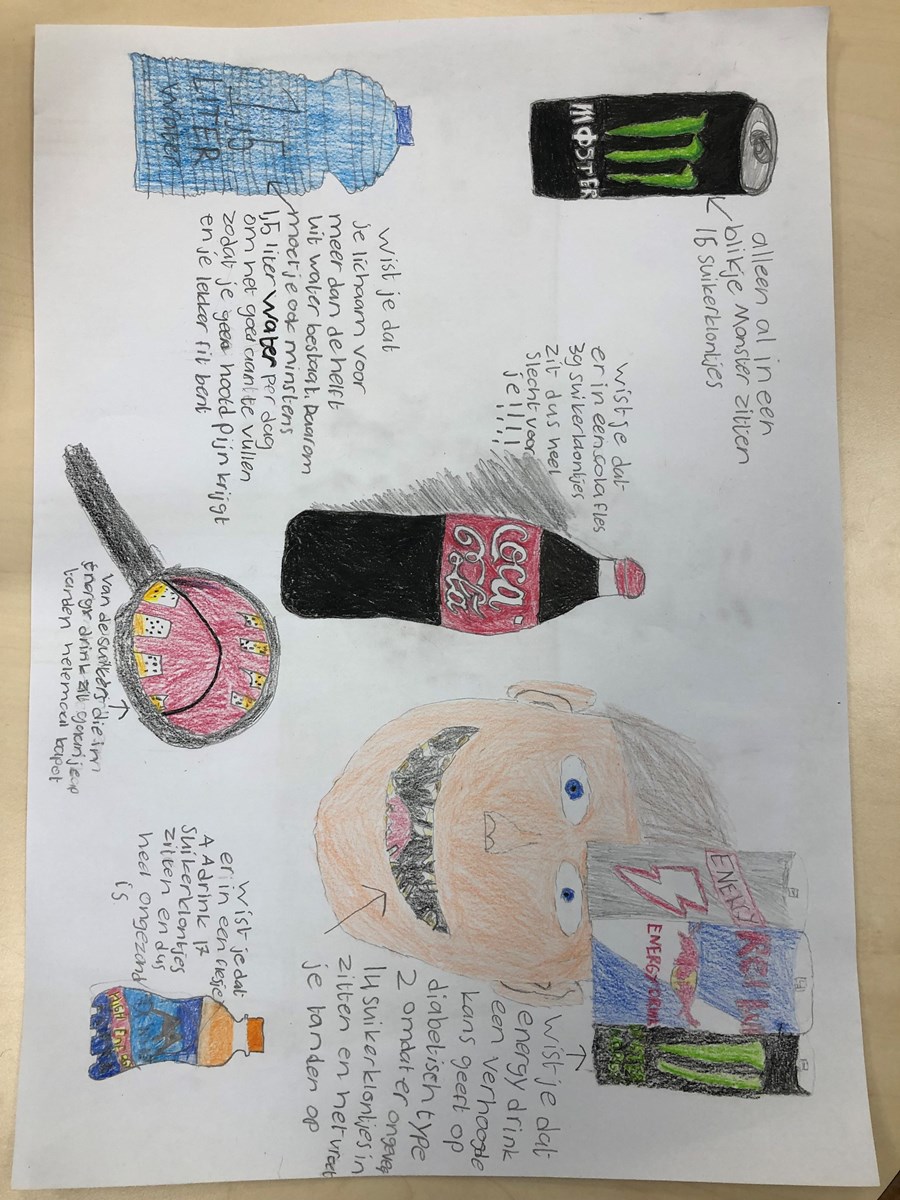 1,5
LITER
water
MONSTER
alleen al in een
blikje Monster zitten
15 suikerklontjes
wist je dat
je lichaam voor
meer dan de helft
uit water bestaat. Daarom
moet je ook minstens
1,5 liter water per dag
om het goed aan te vullen
zodat je geen hoofdpijn krijgt
en je lekker fit bent
wist je dat
er in een cola fles
39 suikerklontjes
zit dus heel
slecht voor
je!!!!
Coca
Cola
van de suikers die in
Energy drink zit gaan je
tanden helemaal kapot
wist je dat
er in een flesje
AA drink 17
Suikerklontjes
zitten en dus
heel ongezond
is
ENERGY
Red Bull
ENERGY DRINK
wist je dat
energy drink
een verhoogde
kans geeft op
diabetisch type
2 omdat er ongeveer
14 suikerklontjes in
zitten en het vreet
je tanden op